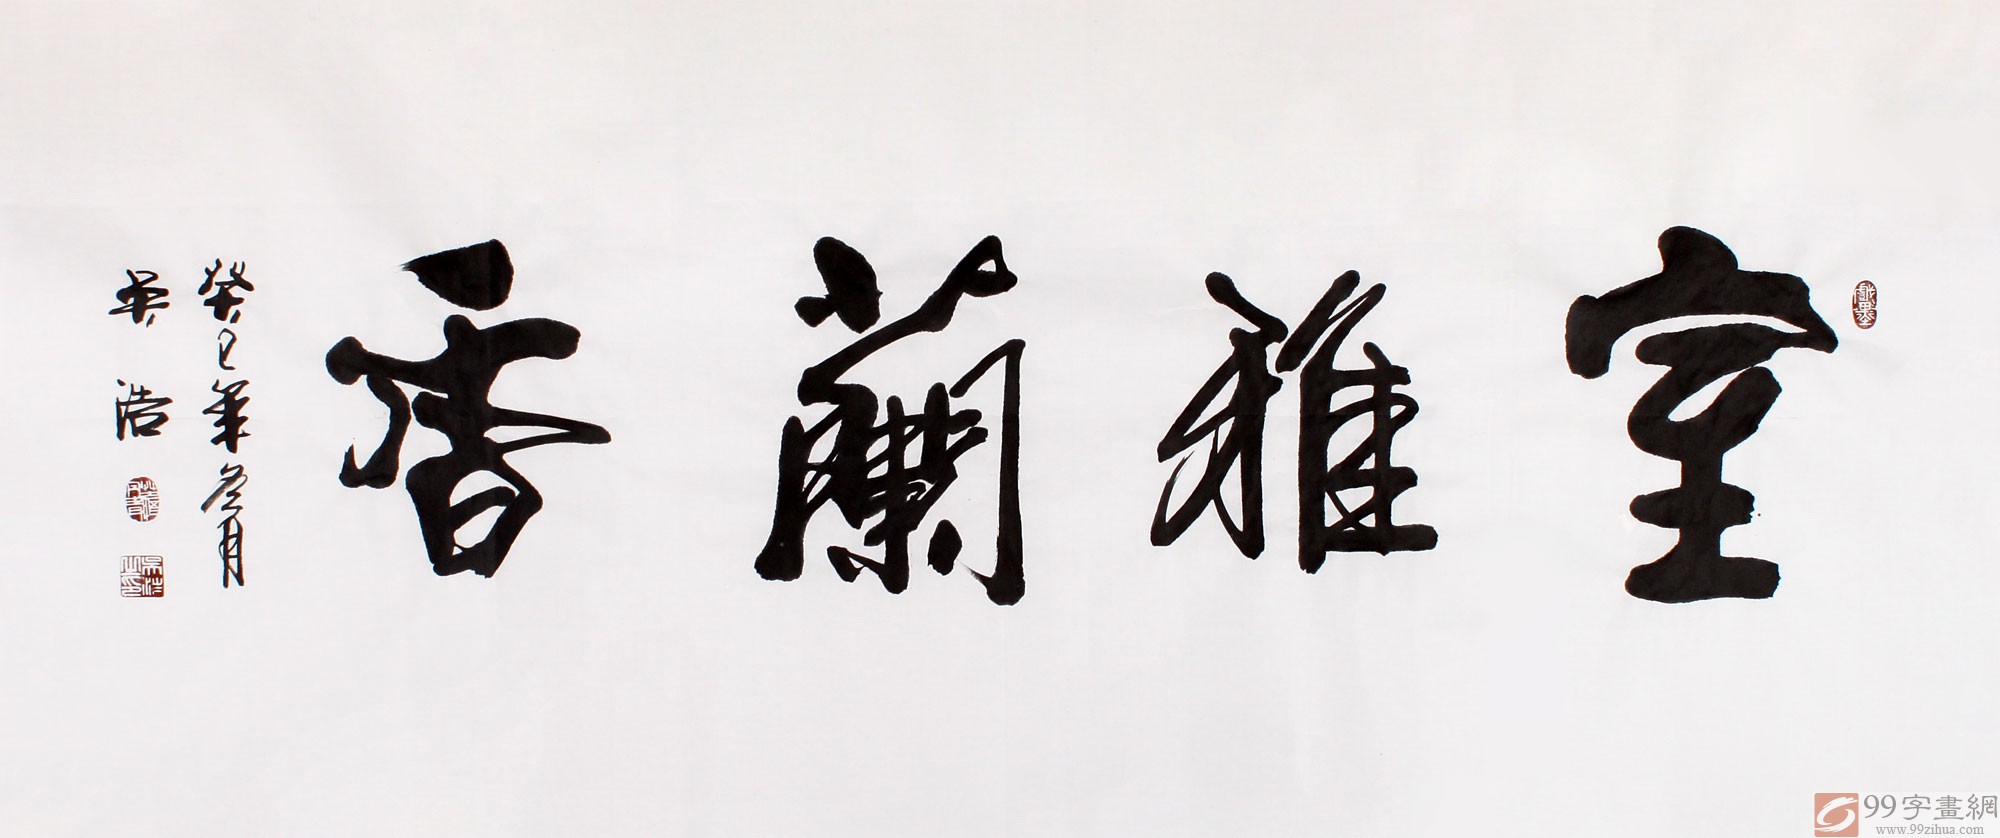 室雅蘭香
癸巳年冬月
吳浩
戲墨
99字畫網
www.99zihua.com